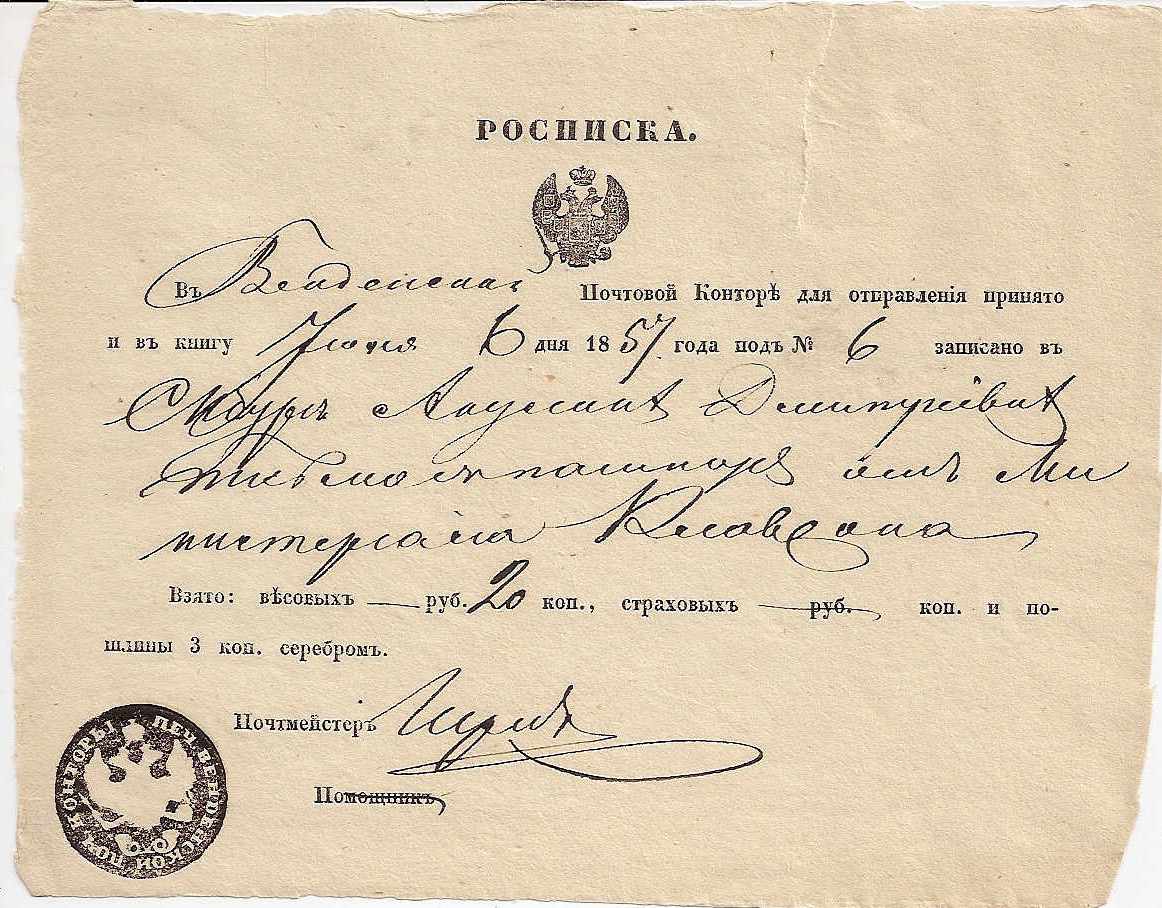 РОСПИСКА.
Въ Венденской Почтовой Конторѣ для отправленія принято
и въ книгу Іюня 6 дня 1857 года подъ № 6 записано въ
письмо съ отъ Ми
нистеріала
Взято: вѣсовыхъ — руб. 20 коп., страховыхъ — руб. коп. и по-
шлины 3 коп. серебромъ.
Почтмейстеръ
Помощникъ
ПЕЧ ВЕНДЕНСКОЙ ПОЧ КОНТОРЫ